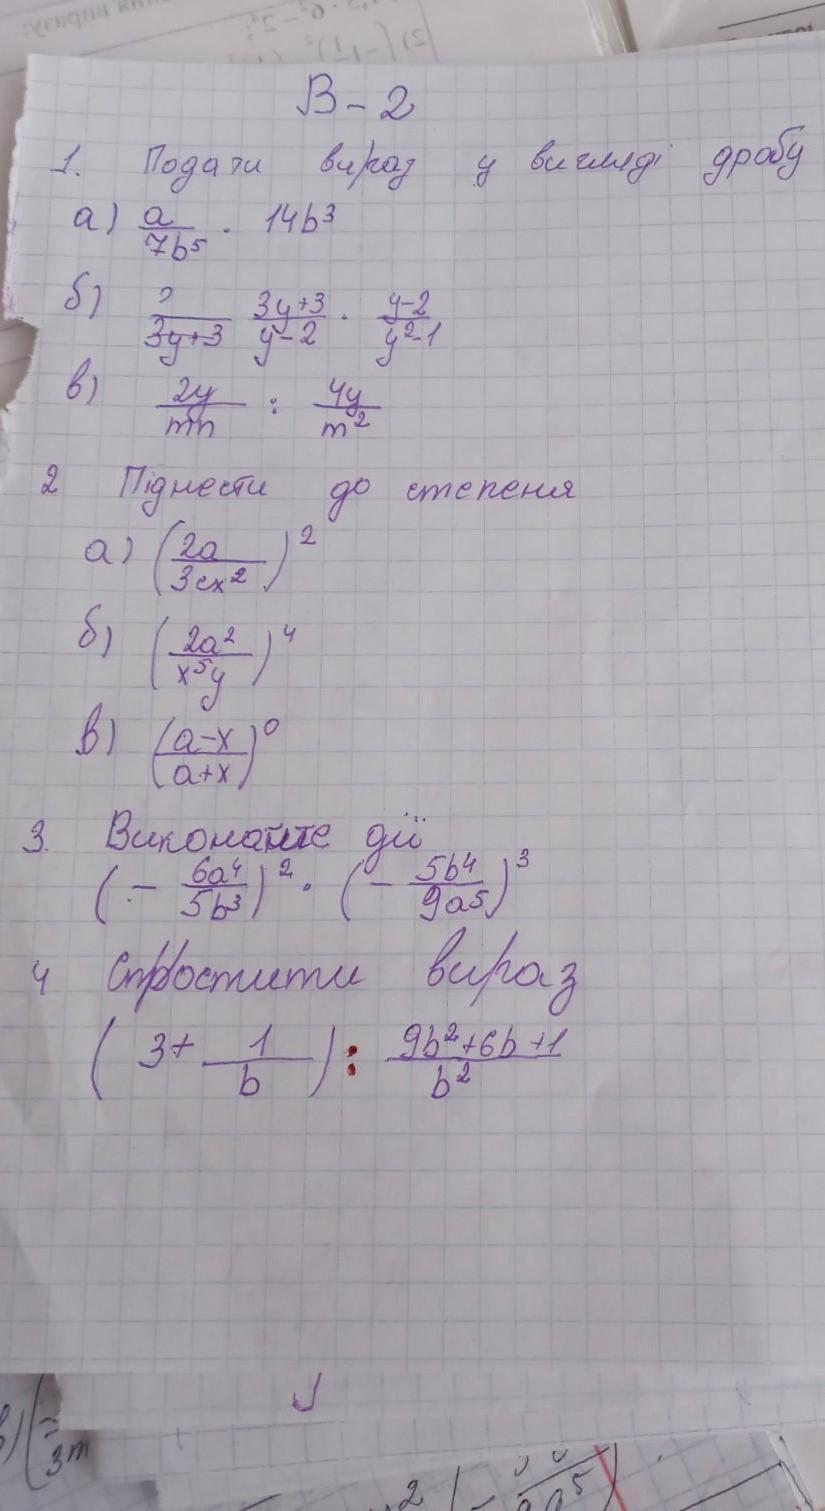 В - 2
1. Подати вираз у вигляді дробу
а) a/7b⁵ · 14b³
б) 3y+3 (3y+3)/(y-2) · (y-2)/(y²-1)
в) 2y/mn : 4y/m²
2 Піднести до степеня
а) (2a/3cx²)²
б) (2a²/x⁵y)⁴
в) ((a-x)/(a+x))⁰
3. Виконайте дії
(- 6a⁴/5b³)² · (- 5b⁴/9a⁵)³
4 Спростити вираз
(3 + 1/b) : (9b²+6b+1)/b²
3m